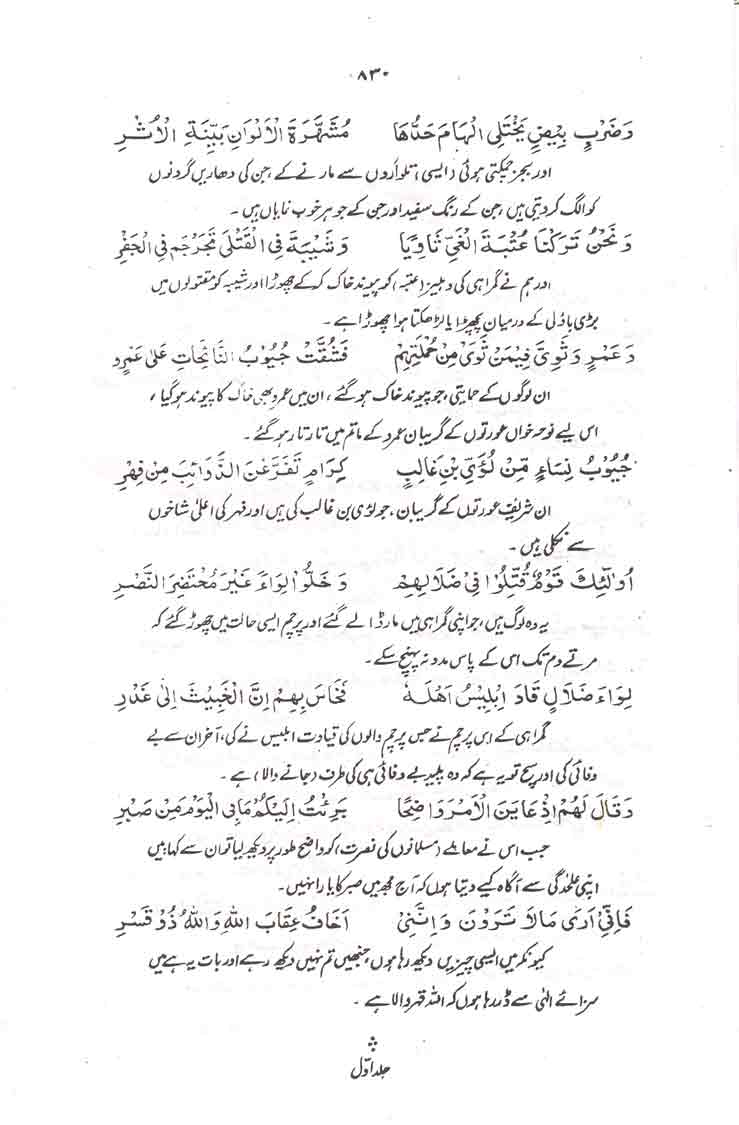 ۸۳۰
وَضَرْبٍ بِبِيْضٍ يَخْتَلِى الْهَامَ حَدُّهَا مُشَهَّرَةَ الْاَلْوَانِ بَيِّنَةِ الْاُثْرِ
اور بجز چمکتی ہوئی (ایسی) تلواروں سے مارنے کے، جن کی دھاریں گردنوں
کو الگ کر دیتی ہیں، جن کے رنگ سفید اور جن کے جوہر خوب نمایاں ہیں۔
وَنَحْنُ تَرَكْنَا عُتْبَةَ الْغَيِّ ثَاوِيًا وَشَيْبَةَ فِى الْقَتْلٰى تَجَرْجَمَ فِى الْجَفْرِ
اور ہم نے گمراہی کی دہلیز (عتبہ) کو پیوند خاک کر کے چھوڑا اور شیبہ کو مقتولوں میں
بڑی باؤلی کے درمیان پچھڑا یا لڑھکتا ہوا چھوڑا ہے۔
وَعَمْرٍو ثَوٰى فِيْمَنْ ثَوٰى مِنْ حُمَاتِهِمْ فَشُقَّتْ جُيُوْبُ النَّائِحَاتِ عَلٰى عَمْرِو
ان لوگوں کے حمایتی، جو پیوند خاک ہو گئے، ان میں عمرو بھی خاک کا پیوند ہو گیا،
اس لیے نوحہ خواں عورتوں کے گریبان عمرو کے ماتم میں تار تار ہو گئے۔
جُيُوْبُ نِسَاءٍ مِّنْ لُؤَيِّ بْنِ غَالِبٍ كِرَامٍ تَفَرَّعْنَ الذَّوَائِبَ مِنْ فِهْرِ
ان شریف عورتوں کے گریبان، جو لؤی بن غالب کی ہیں اور فہر کی اعلیٰ شاخوں
سے نکلی ہیں۔
اُولٰٓئِكَ قَوْمٌ قُتِّلُوْا فِى ضَلَالِهِمْ وَخَلُّوْا لِوَاءً غَيْرَ مُحْتَضِرِ النَّصْرِ
یہ وہ لوگ ہیں، جو اپنی گمراہی میں مار ڈالے گئے اور پرچم ایسی حالت میں چھوڑ گئے کہ
مرتے دم تک اس کے پاس مدد نہ پہنچ سکے۔
لِوَاءَ ضَلَالٍ قَادَ اِبْلِيْسُ اَهْلَهٗ فَخَاسَ بِهِمْ اِنَّ الْخَبِيْثَ اِلٰى غَدْرِ
گمراہی کے اس پرچم نے جس پرچم والوں کی قیادت ابلیس نے کی، آخر ان سے بے
وفائی کی اور سچ تو یہ ہے کہ وہ پلید بے وفائی ہی کی طرف (جانے والا) ہے۔
وَقَالَ لَهُمْ اِذْ عَايَنَ الْاَمْرَ وَاضِحًا بَرِئْتُ اِلَيْكُمْ مَابِى الْيَوْمَ مِنْ صَبْرِ
جب اس نے معاملے (مسلمانوں کی نصرت) کو واضح طور پر دیکھ لیا تو ان سے کہا: میں
اپنی علٰحدگی سے آگاہ کیے دیتا ہوں کہ آج مجھ میں صبر کا یارا نہیں۔
فَاِنِّىْ اَرٰى مَالَا تَرَوْنَ وَاِنَّنِىْ اَخَافُ عِقَابَ اللهِ وَاللهُ ذُوْ قَسْرِ
کیونکہ میں ایسی چیزیں دیکھ رہا ہوں، جنھیں تم نہیں دیکھ رہے اور بات یہ ہے میں
سزائے الٰہی سے ڈر رہا ہوں کہ اللہ قہر والا ہے۔
جلد اوّل